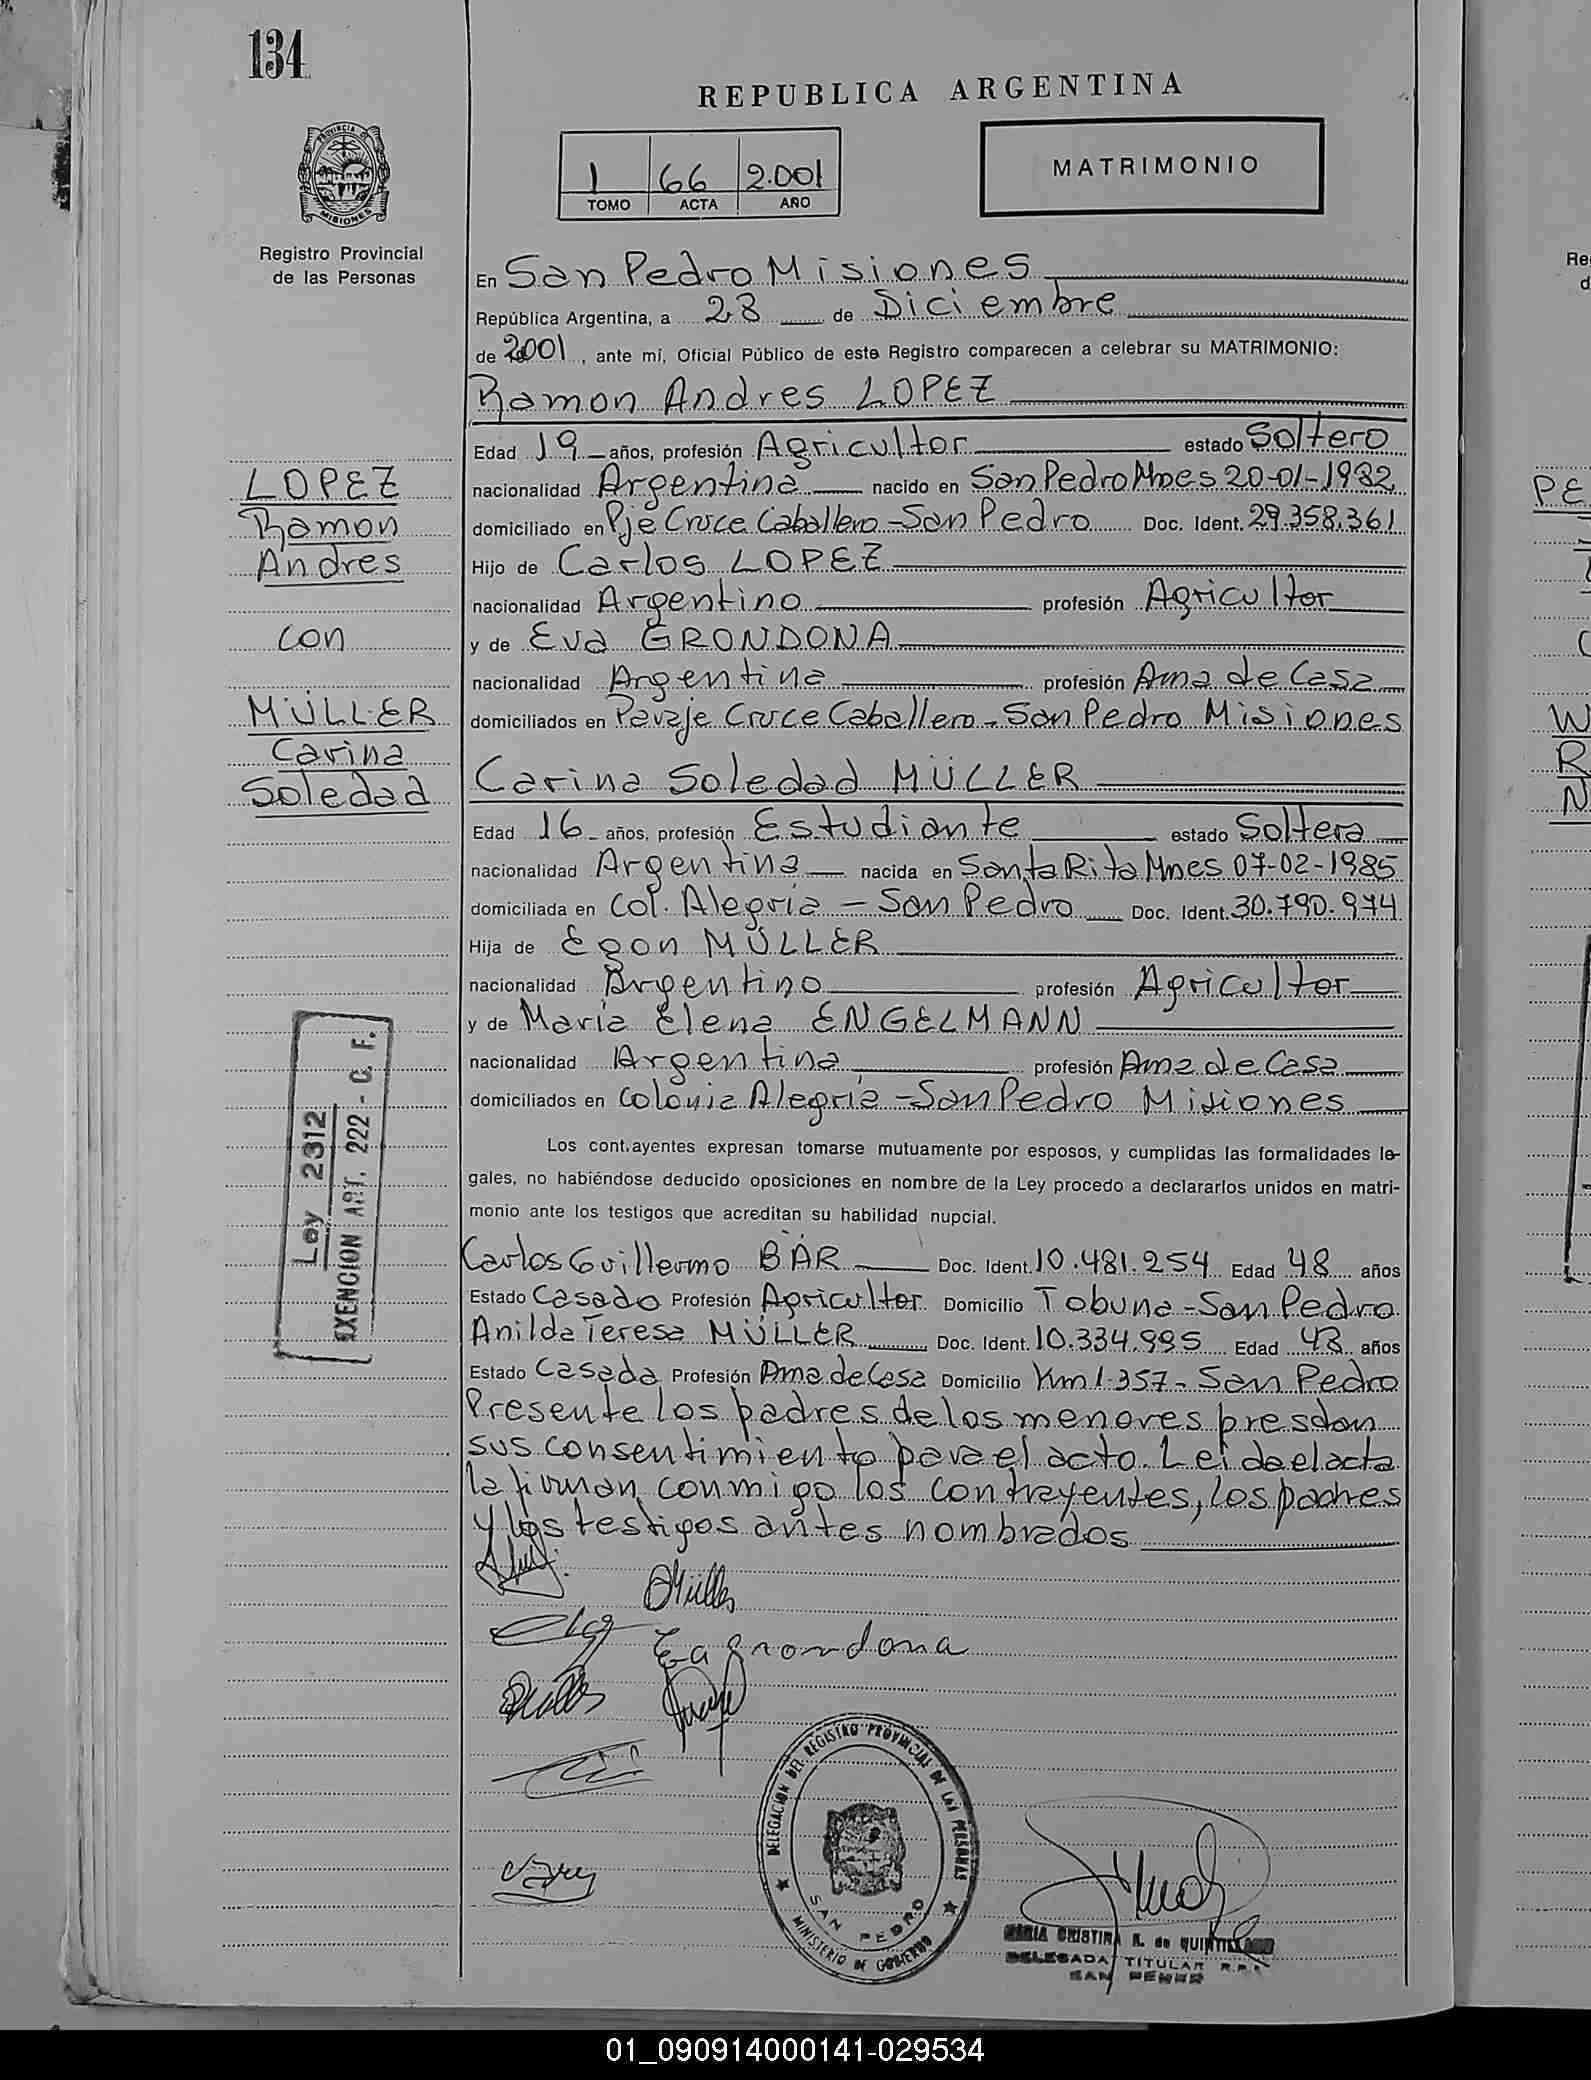 134
REPUBLICA ARGENTINA
PROVINCIA DE MISIONES
1 66 2.001
TOMO ACTA AÑO
MATRIMONIO
Registro Provincial
de las Personas
En San Pedro Misiones
República Argentina, a 28 de Diciembre
de 2001, ante mí, Oficial Público de este Registro comparecen a celebrar su MATRIMONIO:
Ramon Andres LOPEZ
Edad 19 años, profesión Agricultor estado Soltero
LOPEZ
Ramon
Andres
con
MÜLLER
Carina
Soledad
nacionalidad Argentina nacido en San Pedro Mnes 20-01-1982
domiciliado en Pje Cruce Caballero - San Pedro Doc. Ident. 29.358.361
Hijo de Carlos LOPEZ
nacionalidad Argentino profesión Agricultor
y de Eva GRONDONA
nacionalidad Argentina profesión Ama de Casa
domiciliados en Paraje Cruce Caballero - San Pedro Misiones
Carina Soledad MÜLLER
Edad 16 años, profesión Estudiante estado Soltera
nacionalidad Argentina nacida en Santa Rita Mnes 07-02-1985
domiciliada en Col. Alegría - San Pedro Doc. Ident. 30.790.974
Hija de Egon MÜLLER
nacionalidad Argentino profesión Agricultor
y de María Elena ENGELMANN
nacionalidad Argentina profesión Ama de Casa
domiciliados en Colonia Alegría - San Pedro Misiones
Ley 2312
EXENCION ART. 222 - C. F.
Los cont.ayentes expresan tomarse mutuamente por esposos, y cumplidas las formalidades le-
gales, no habiéndose deducido oposiciones en nombre de la Ley procedo a declararlos unidos en matri-
monio ante los testigos que acreditan su habilidad nupcial.
Carlos Guillermo BÄR Doc. Ident. 10.481.254 Edad 48 años
Estado Casado Profesión Agricultor Domicilio Tobuna - San Pedro
Anilda Teresa MÜLLER Doc. Ident. 10.334.995 Edad 48 años
Estado Casada Profesión Ama de Casa Domicilio Km 1.357 - San Pedro
Presente los padres de los menores prestan
sus consentimiento para el acto. Leída el acta
la firman conmigo los contrayentes, los padres
y los testigos antes nombrados
Müller
Ea grondona
DELEGACION DEL REGISTRO PROVINCIAL DE LAS PERSONAS
SAN PEDRO
MINISTERIO DE GOBIERNO
MARIA CRISTINA R. de
DELEGADA TITULAR R.P.P.
SAN PEDRO
01_090914000141-029534